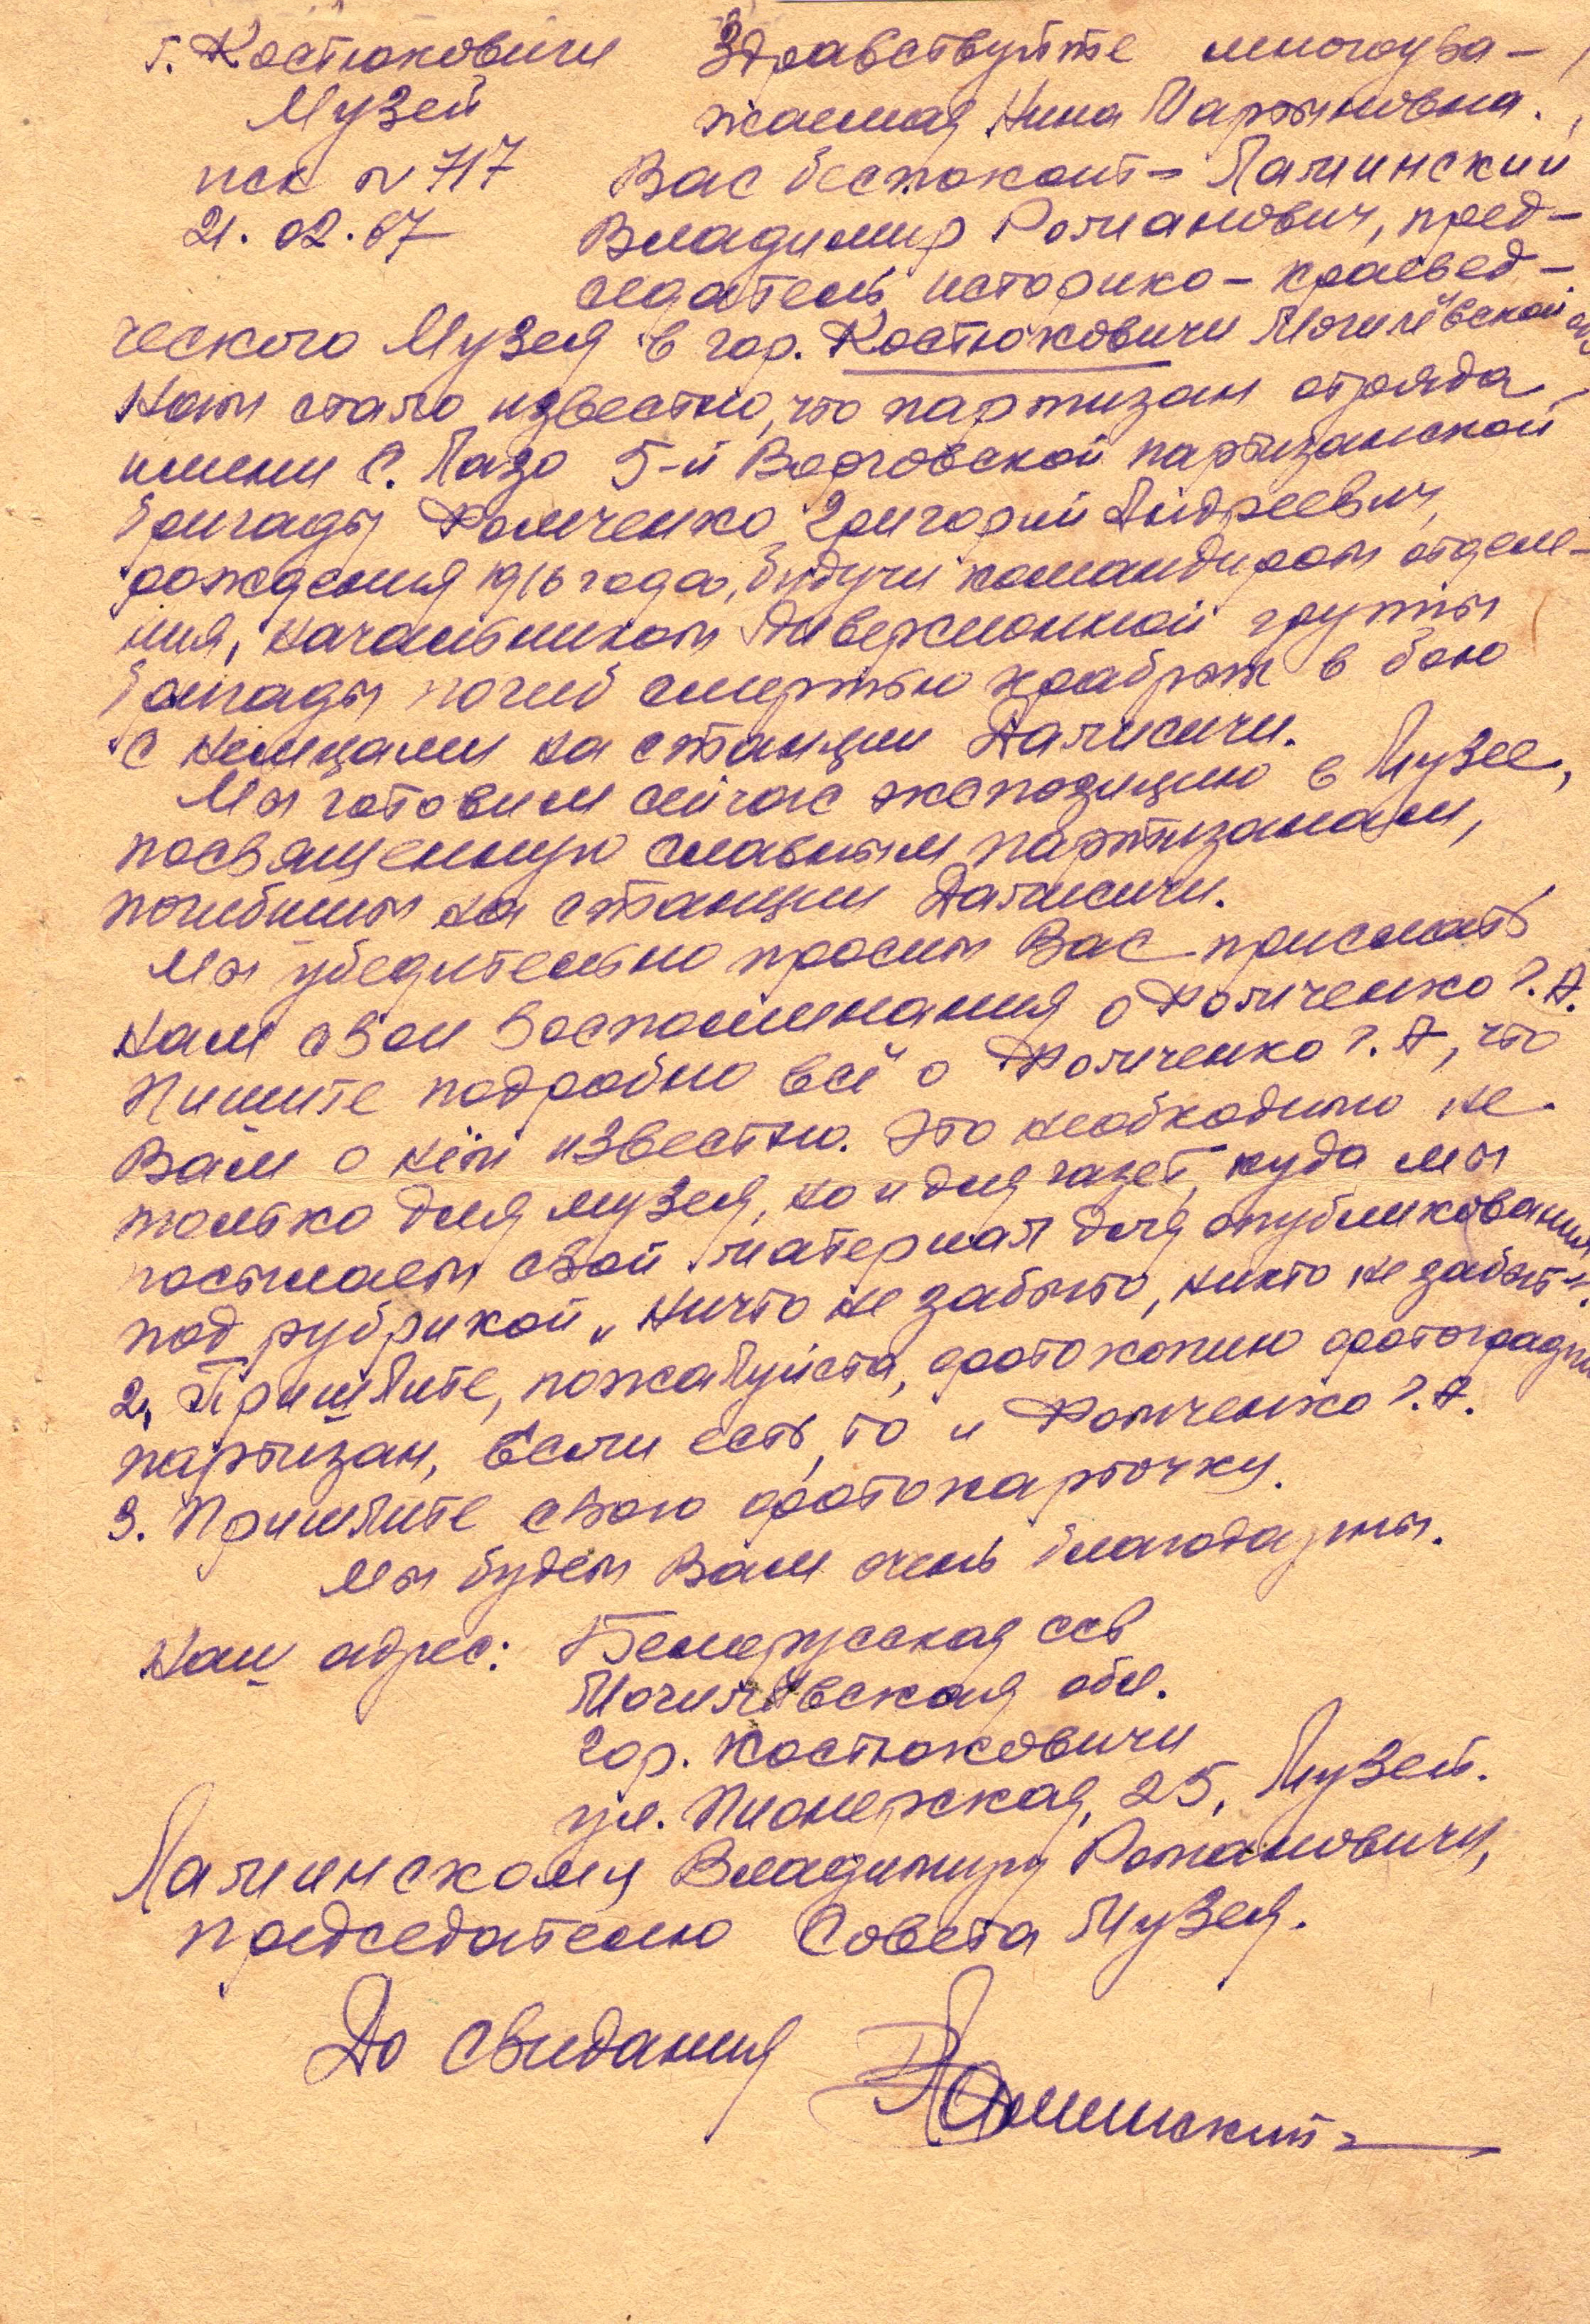 г. Костюковичи
Музей
исх № 717
21.02.67
Здравствуйте многоува-
жаемая Нина Мартыновна.
Вас беспокоит - Ламинский
Владимир Романович, пред-
седатель историко-краевед-
ческого Музея в гор. Костюковичи Могилёвской
Нам стало известно, что партизан отряда
имени С. Лазо 5-й Ворговской партизанской
бригады Фомченко Григорий Андреевич,
рождения 1916 года, будучи командиром отделе-
ния, начальником диверсионной группы
бригады погиб смертью храбрых в бою
с немцами на станции Далисичи.
Мы готовим сейчас экспозицию в Музее,
посвященную славным партизанам,
погибшим на станции Далисичи.
Мы убедительно просим Вас прислать
нам свои воспоминания о Фомченко Г.А.
Пишите подробно всё о Фомченко Г.А, что
Вам о нём известно. Это необходимо не
только для музея, но и для газет, куда мы
посылаем свой материал для опубликования
под рубрикой „Ничто не забыто, никто не забыт".
2, Пришлите, пожалуйста, фотокопию фотографии
партизан, если есть, то и Фомченко Г.А.
3. Пришлите свою фотокарточку.
Мы будем Вам очень благодарны.
Наш адрес: Белорусская ССР
Могилёвская обл.
гор. Костюковичи
ул. Пионерская, 25, Музей.
Ламинскому Владимиру Романовичу,
председателю Совета Музея.
До свидания Ламинский